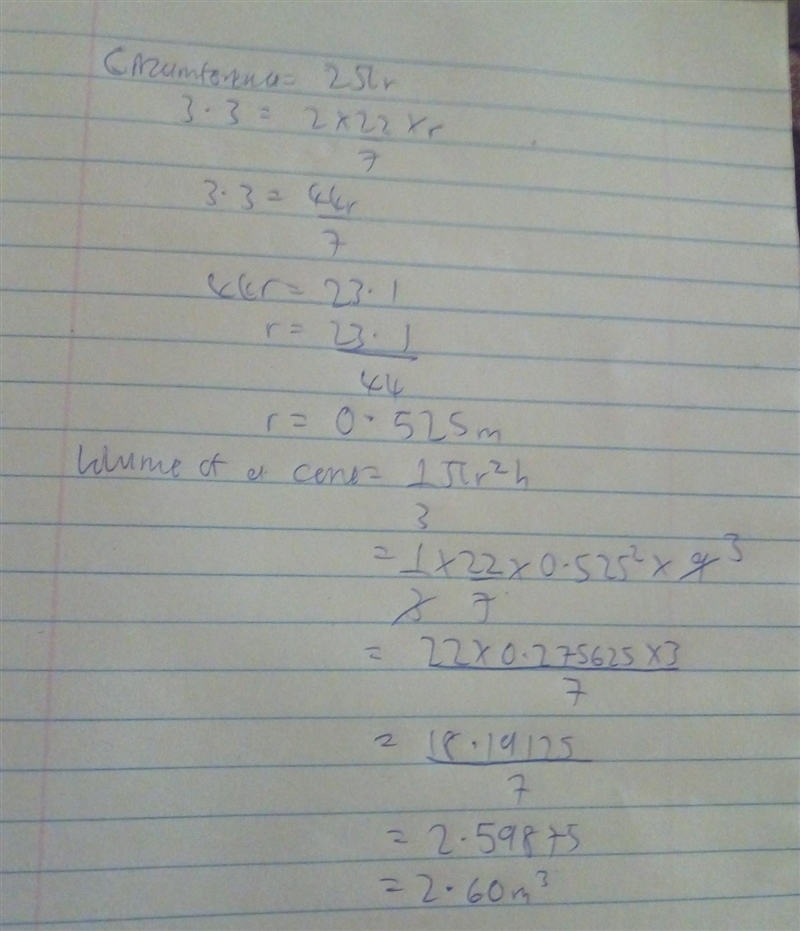 Circumference = 2πr
3.3 = 2×22×r
7
3.3 = 44r
7
44r = 23.1
r = 23.1
44
r = 0.525m
Volume of a cone = 1πr²h
3
= 1×22×0.525²×9 3
3 7
= 22×0.275625×3
7
= 18.19125
7
= 2.59875
= 2.60m³